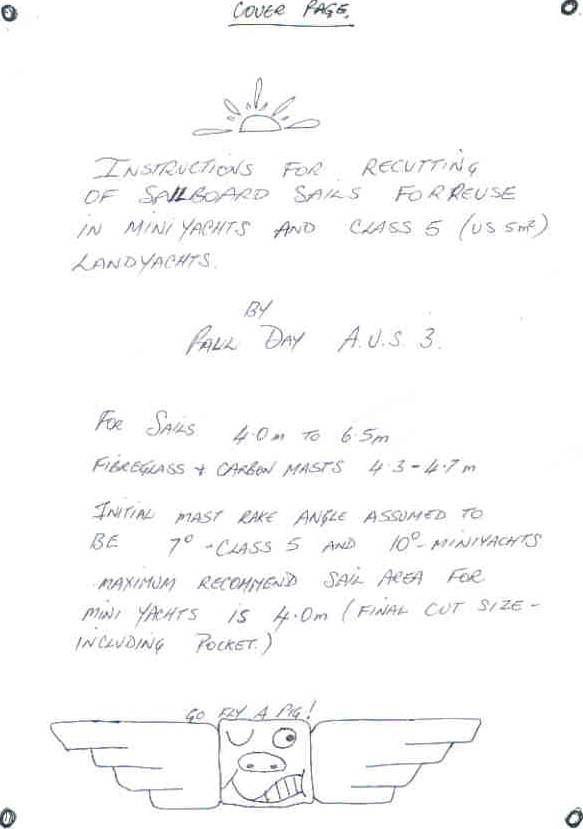 COVER PAGE.
INSTRUCTIONS FOR RECUTTING
OF SAILBOARD SAILS FOR REUSE
IN MINI YACHTS AND CLASS 5 (US 5m²)
LANDYACHTS.
BY
PAUL DAY A.U.S. 3.
FOR SAILS 4.0m TO 6.5m
FIBREGLASS + CARBON MASTS 4.3-4.7m
INITIAL MAST RAKE ANGLE ASSUMED TO
BE 7° -CLASS 5 AND 10°- MINIYACHTS
MAXIMUM RECOMMEND SAIL AREA FOR
MINI YACHTS IS 4.0m (FINAL CUT SIZE -
INCLUDING POCKET.)
GO FLY A PIG!